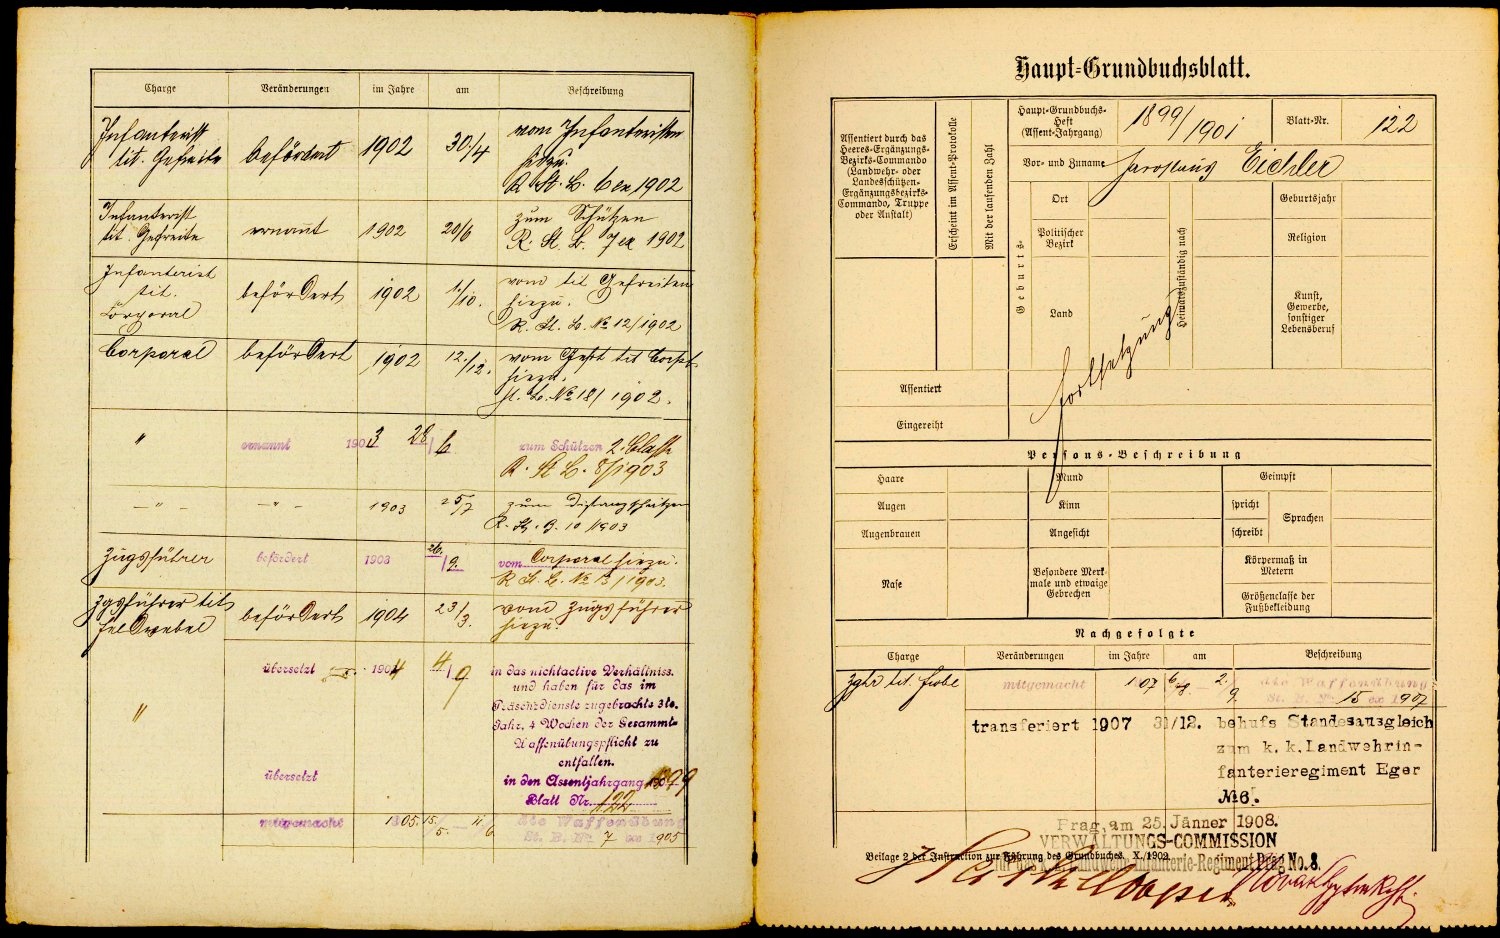 Charge Veränderungen im Jahre am Beschreibung
Infanterist
tit. Gefreite befördert 1902 30./4 vom Infanteristen
hiezu.
R. St. B. 6 ex 1902
Infanterist
tit. Gefreite ernannt 1902 20/6 zum Schützen
R. St. B. 7 ex 1902
Infanterist
tit.
Corporal befördert 1902 1./10. vom tit Gefreiten
hiezu.
R. St. B. № 12/1902
Corporal befördert 1902 12./12. vom Inft tit Corpl
hiezu.
St. B. № 18/1902.
" ernannt 1903 28/6 zum Schützen 2. Classe
R. St. B. 8/1903
—"— —"— 1903 25/7 zum Distanzschätzer
R. St. B. 10/1903
Zugsführer befördert 1903 26./9. vom Corporal hiezu.
R. St. B. № 13/1903.
Zgsführer tit
Feldwebel befördert 1904 23/3. vom Zugsführer
hiezu.
" übersetzt 1904 4/9 in das nichtactive Verhältniss.
und haben für das im
Präsenzdienste zugebrachte 3te.
Jahr. 4 Wochen der Gesammt-
Waffenübungspflicht zu
entfallen.
übersetzt in den Assentjahrgang 1899
Blatt Nr. 122
mitgemacht 1905. 15./5. — 11/6. die Waffenübung
St. B. Nr. 7 ex 1905
Haupt-Grundbuchsblatt.
Assentiert durch das
Heeres-Ergänzungs-
Bezirks-Commando
(Landwehr- oder
Landesschützen-
Ergänzungsbezirks-
Commando, Truppe
oder Anstalt)
Erscheint im Assent-Protokolle
Mit der laufenden Zahl
Haupt-Grundbuchs-
Heft
(Assent-Jahrgang) 1899/1901 Blatt-Nr. 122
Vor- und Zuname Jaroslaus Eichler
Geburts-
Ort
Politischer
Bezirk
Land
Heimatszuständig nach
Geburtsjahr
Religion
Kunst,
Gewerbe,
sonstiger
Lebensberuf
Fortsetzung
Assentiert
Eingereiht
Persons-Beschreibung
Haare Mund Geimpft
Augen Kinn spricht Sprachen
Augenbrauen Angesicht schreibt
Nase Besondere Merk-
male und etwaige
Gebrechen
Körpermaß in
Metern
Größenclasse der
Fußbekleidung
Nachgefolgte
Charge Veränderungen im Jahre am Beschreibung
Zgfhr tit Fwbl mitgemacht 1907 6./8. — 2./9. die Waffenübung
St. B. Nr. 15 ex 1907
transferiert 1907 31/12. behufs Standesausgleich
zum k. k. Landwehrin-
fanterieregiment Eger
№ 6.
Prag, am 25. Jänner 1908.
VERWALTUNGS-COMMISSION
Beilage 2 der Instruction zur Führung des Grundbuches, X./1902.
für das k. k. Landwehr-Infanterie-Regiment Prag No. 8.